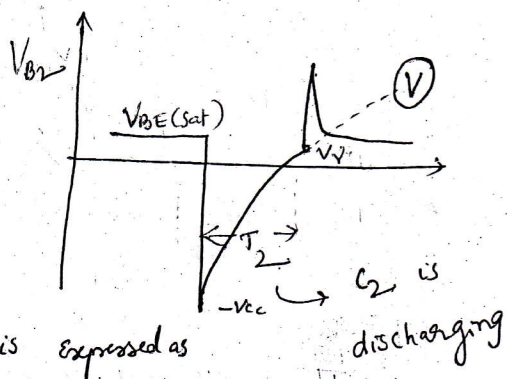 VB2
V
VBE(Sat)
Vγ
T2
-Vcc
C2 is
discharging
is Expressed as